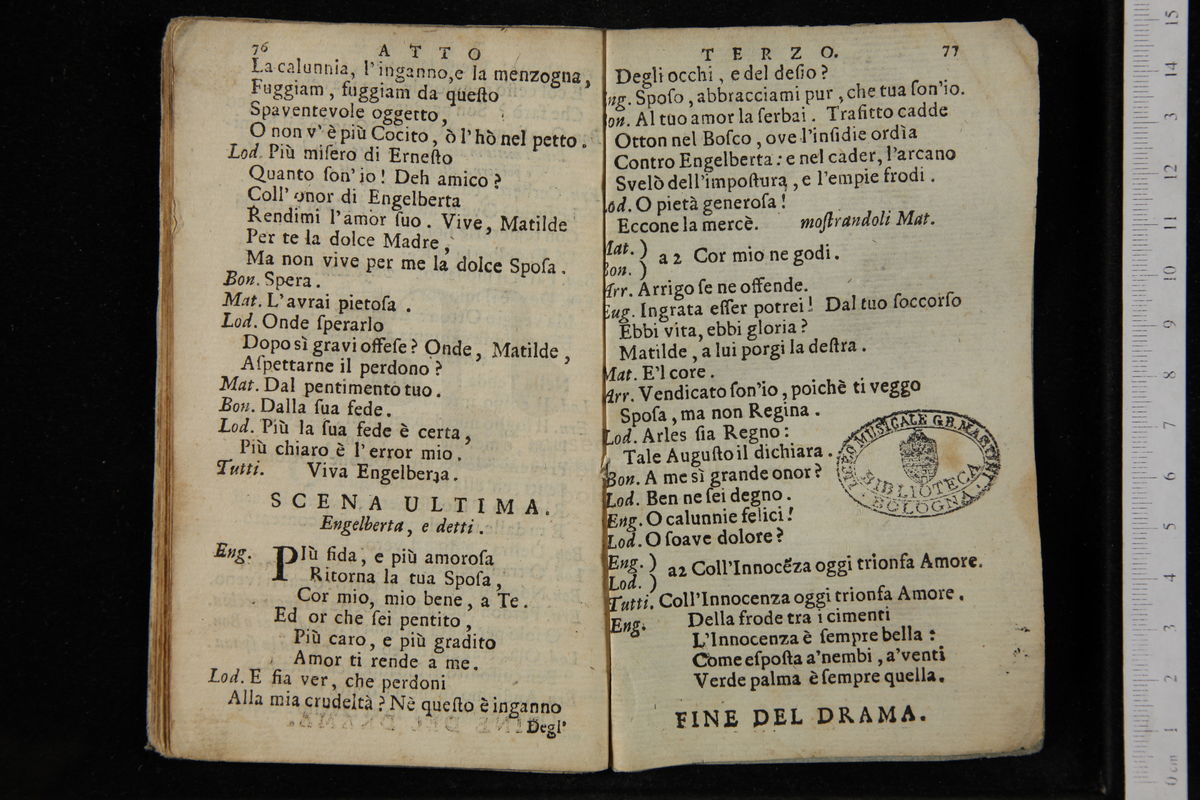 76 ATTO
La calunnia, l'inganno,e la menzogna,
Fuggiam, fuggiam da queſto
Spaventevole oggetto,
O non v'è più Cocito, ò l'hò nel petto.
Lod. Più miſero di Erneſto
Quanto ſon'io! Deh amico?
Coll'onor di Engelberta
Rendimi l'amor ſuo. Vive, Matilde
Per te la dolce Madre,
Ma non vive per me la dolce Spoſa.
Bon. Spera.
Mat. L'avrai pietoſa.
Lod. Onde ſperarlo
Dopo sì gravi offeſe? Onde, Matilde,
Aſpettarne il perdono?
Mat. Dal pentimento tuo.
Bon. Dalla ſua fede.
Lod. Più la ſua fede è certa,
Più chiaro è l'error mio.
Tutti. Viva Engelberta.
SCENA ULTIMA.
Engelberta, e detti.
Eng. PIù fida, e più amoroſa
Ritorna la tua Spoſa,
Cor mio, mio bene, a Te.
Ed or che ſei pentito,
Più caro, e più gradito
Amor ti rende a me.
Lod. E fia ver, che perdoni
Alla mia crudeltà? Nè queſto è inganno
Degl'
TERZO. 77
Degli occhi, e del deſio?
Eng. Spoſo, abbracciami pur, che tua ſon'io.
Bon. Al tuo amor la ſerbai. Trafitto cadde
Otton nel Boſco, ove l'inſidie ordìa
Contro Engelberta: e nel cader, l'arcano
Svelò dell'impoſtura, e l'empie frodi.
Lod. O pietà generoſa!
Eccone la mercè. moſtrandoli Mat.
Mat. )
a 2 Cor mio ne godi.
Bon. )
Arr. Arrigo ſe ne offende.
Eug. Ingrata eſſer potrei! Dal tuo ſoccorſo
Ebbi vita, ebbi gloria?
Matilde, a lui porgi la deſtra.
Mat. E'l core.
Arr. Vendicato ſon'io, poichè ti veggo
Spoſa, ma non Regina.
Lod. Arles ſia Regno:
Tale Auguſto il dichiara.
Bon. A me sì grande onor?
Lod. Ben ne ſei degno.
Eng. O calunnie felici!
Lod. O ſoave dolore?
Eng. )
a2 Coll'Innocẽza oggi trionfa Amore.
Lod. )
Tutti. Coll'Innocenza oggi trionfa Amore.
Eng. Della frode tra i cimenti
L'Innocenza è ſempre bella:
Come eſpoſta a'nembi, a'venti
Verde palma è ſempre quella.
FINE DEL DRAMA.
LICEO MUSICALE G.B. MARTINI
BIBLIOTECA
BOLOGNA
0 cm 1 2 3 4 5 6 7 8 9 10 11 12 13 14 15